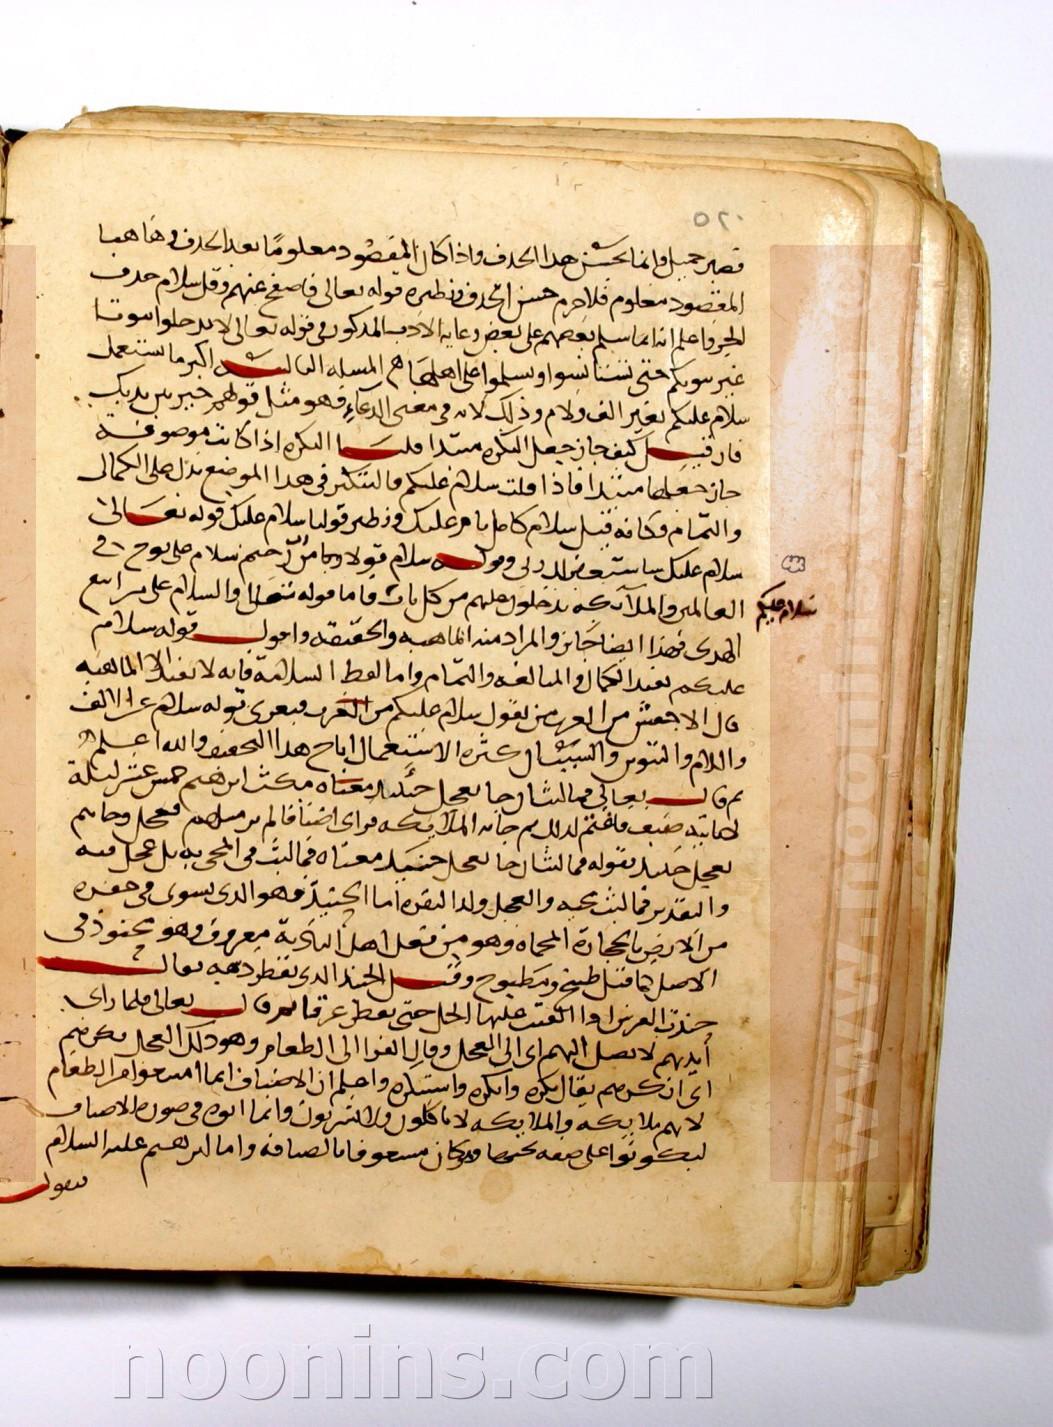 ٥٢٠
فصبر جميل وانما يحسن هذا الحذف واذا كان المقصود معلوما بعد الحذف وهاهنا
المقصود معلوم فلا جرم حسن الحذف ونظيره قوله تعالى فاصفح عنهم وقل سلام حذف
الخبر واعلم انه انما سلم بعضهم على بعض رعاية الادب المذكور في قوله تعالى لا تدخلوا بيوتا
غير بيوتكم حتى تستانسوا وتسلموا على اهلها هم المسله الثالثه اكثر ما يستعمل
سلام عليكم بغير الف ولام وذلك لانه في معنى الدعاء فهو مثل قولهم خير بين يديك
فان قيل كيف جاز جعل النكره مبتدا قلنا النكره اذا كانت موصوفة
جاز جعلها مبتدا فاذا قلت سلام عليكم فالتنكير في هذا الموضع يدل على الكمال
والتمام فكانه قيل سلام كامل تام عليك ونظير قولنا سلام عليك قوله تعالى
سلام عليك ساستغفر لك ربى وقوله سلام قولا من رب رحيم سلام على نوح فى
العالمين والملائكه يدخلون عليهم من كل باب فاما قوله تعالى والسلام على من اتبع
الهدى فهذا ايضا جائز والمراد منه الماهية والحقيقه واقول قوله سلام
عليكم يفيد الكمال والمبالغه والتمام واما لفظ السلامة فانه لا يفيد الا الماهيه
قال الاخفش من العرب من يقول سلام عليكم فيعرى قوله سلام عن الالف
واللام والتنوين والسبب ان كثرة الاستعمال اباح هذا التخفيف والله اعلم
ثم قال تعالى فما لبث ان جا بعجل حنيذ معناه مكث ابرهيم خمس عشر ليلة
لا ياتيه ضيف فاغتم لذلك ثم جاته الملائكه فراى اضيافا لم ير مثلهم فعجل وجاهم
بعجل حنيذ فقوله فما لبث ان جا بعجل حنيذ معناه فما لبث في المجي به بل عجل فيه
والتقدير فما لبث مجيه والعجل ولد البقره اما الحنيذ فهو الذى يشوى في حفره
من الارض بالحجارة المحماه وهو من فعل اهل البادية معروف وهو محنوذ في
الاصل كما قيل طبيخ ومطبوخ وقيل الحنيذ الذى يقطر دسمه يقال
حنذت الفرس اذا القيت عليها الجل حتى تقطر عرقا ثم قال تعالى فلما راى
ايديهم لا تصل اليهم اى الى العجل وقال الفرا الى الطعام وهو ذلك العجل نكرهم
اى انكرهم يقال نكره وانكره واستنكره واعلم ان الاضياف انما امتنعوا من الطعام
لانهم ملايكه والملايكه لا ياكلون ولا يشربون وانما اتوه في صورة الاضياف
ليكونوا على صفه يحبها وهو كان مشغوفا بالضيافه واما ابرهيم عليه السلام
فنقول
سلام عليكم
www.noonins.com
noonins.com